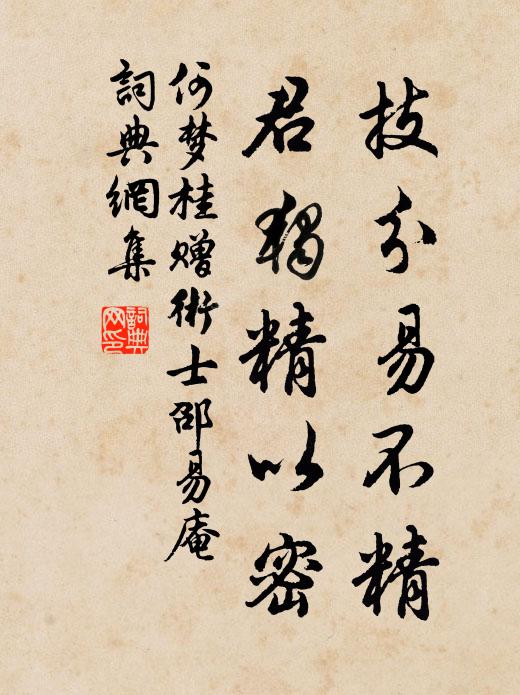 技分易不精
君独精以密
何梦桂赠術士邵易庵
詞典網集
詞典网印